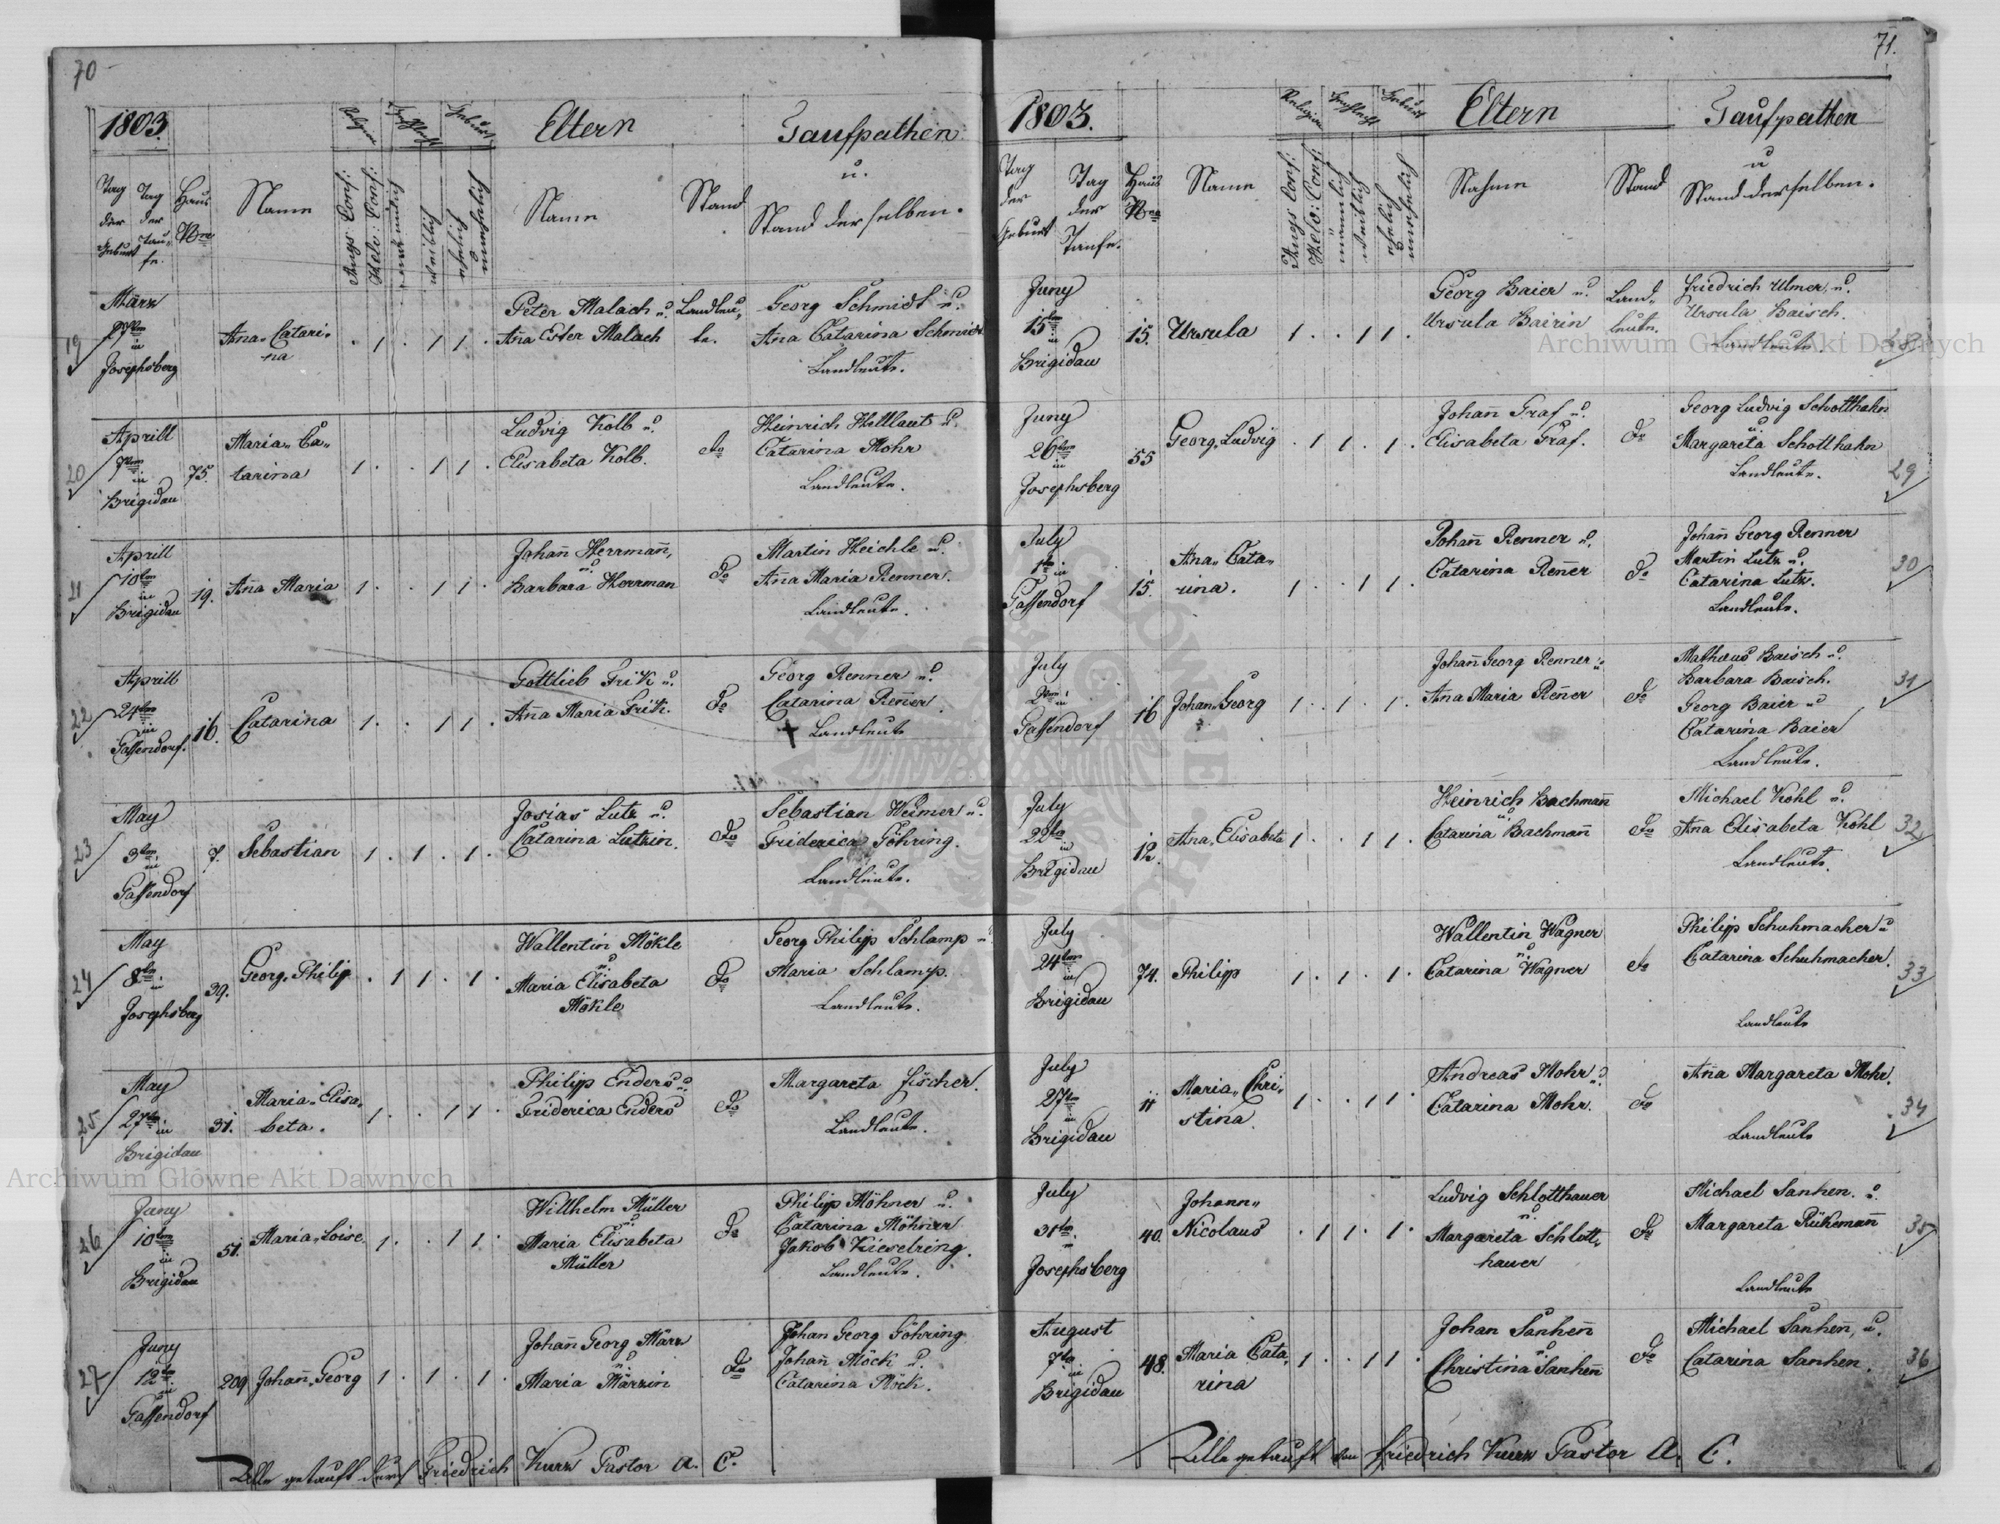 70
1803.
Religion
Geschlecht
Geburt
Eltern
Taufpathen
u.
Stand derselben.
Tag der Geburt
Tag der Taufe.
Haus Nro
Name
Augs: Conf:
Helv: Conf:
männlich
weiblich
ehelich
unehelich
Name
Stand
März
27ten
in
Josephsberg
19
Ana Catari-
na
. 1 . 1 1 .
Peter Malach u.
Aña Ester Malach
Landleu-
te.
Georg Schmidt u.
Ana Catarina Schmidt
Landleute.
Aprill
in
Brigidau
20
75.
Maria Ca-
tarina
1 . . 1 1 .
Ludvig Kolb u.
Elisabeta Kolb.
do
Heinrich Hellaut u.
Catarina Mohr
Landleute.
Aprill
10ten
in
Brigidau
21
19.
Aña Maria
1 . . 1 1 .
Johañ Herrmañ,
u.
Barbara Herrman
do
Martin Heichle u.
Aña Maria Renner.
Landleute.
Aprill
24ten
in
Gassendorf.
22
16.
Catarina
1 . . 1 1 .
Gottlieb Frik u.
Aña Maria Frik.
do
Georg Renner u.
Catarina Reñer.
Landleute
May
3ten
in
Gassendorf
23
7.
Sebastian
1 . 1 . 1 .
Josias Lutz u.
Catarina Lutzin.
do
Sebastian Weimer u.
Friderica Göhring.
Landleute.
May
8ten
in
Josephsberg
24
39.
Georg Philip
. 1 1 . 1 .
Wallentin Mökle
u.
Maria Elisabeta
Mökle
do
Georg Philipp Schlamp u.
Maria Schlamp.
Landleute.
May
27ten in
Brigidau
25
31.
Maria Elisa-
beta.
1 . . 1 1 .
Philipp Enders u.
Friderica Enders
do
Margareta Fischer.
Landleute.
Juny
10ten
in
Brigidau
26
51.
Maria Loise.
1 . . 1 1 .
Willhelm Müller
u.
Maria Elisabeta
Müller
do
Philipp Möhner u.
Catarina Möhner
Jakob Kieselring.
Landleute.
Juny
12ten
in
Gassendorf
27
209
Johañ Georg
1 . 1 . 1 .
Johañ Georg März
u.
Maria Märzin
do
Johan Georg Göhring
Johañ Möck u.
Catarina Möck.
Alle getauft durch Friedrich Kurz Pastor A. C.
71.
1803.
Religion
Geschlecht
Geburt
Eltern
Taufpathen
u
Stand derselben.
Tag der Geburt
Tag der Taufe.
Haus Nro
Name
Augs Conf:
Helv: Conf:
männlich
weiblich
ehelich
unehelich
Nahme
Stand
Juny
15ten
in
Brigidau
15.
Ursula
1 . . 1 1 .
Georg Baier u.
Ursula Bairin
Land-
leute.
Friedrich Ulmer, u.
Ursula Baisch.
Landleute.
28
Juny
26ten
in
Josephsberg
55
Georg Ludvig
. 1 1 . 1 .
Johañ Graf u.
Elisabeta Graf.
do
Georg Ludvig Schotthahn
u
Margareta Schotthahn
Landleute.
29
July
1ten in
Gassendorf
15.
Ana Cata-
rina.
1 . . 1 1 .
Johañ Renner u.
Catarina Reñer
do
Johañ Georg Renner
Martin Lutz u.
Catarina Lutz.
Landleute.
30
July
2ten in
Gassendorf
16
Johan Georg
1 . 1 . 1 .
Johañ Georg Renner u.
Aña Maria Reñer
do
Matheus Baisch u.
Barbara Baisch.
Georg Baier u
Catarina Baier
Landleute.
31
July
22ten
in
Brigidau
12.
Ana Elisabeta
1 . . 1 1 .
Heinrich Bachmañ
u.
Catarina Bachmañ
do
Michael Kohl u.
Ana Elisabeta Kohl
Landleute.
32
July
24ten
in
Brigidau
74.
Philipp
1 . 1 . 1 .
Wallentin Wagner
u.
Catarina Wagner
do
Philipp Schuhmacher u
Catarina Schuhmacher.
Landleute
33
July
27ten
in
Brigidau
11
Maria Chri-
stina.
1 . . 1 1 .
Andreas Mohr u.
Catarina Mohr.
do
Aña Margareta Mohr.
Landleute
34
July
31ten
in
Josephsberg
40.
Johann
Nicolaus
. 1 1 . 1 .
Ludvig Schlotthauer
u.
Margareta Schlott-
hauer
do
Michael Sanhen. u.
Margareta Rükemañ
Landleute
35
August
7ten
in
Brigidau
48.
Maria Cata-
rina
1 . . 1 1 .
Johan Sanheñ
u.
Christina Sanheñ
do
Michael Sanheñ, u.
Catarina Sanhen.
36
Alle getauft von Friedrich Kurz Pastor A. C.
Archiwum Główne Akt Dawnych
Archiwum Główne Akt Dawnych